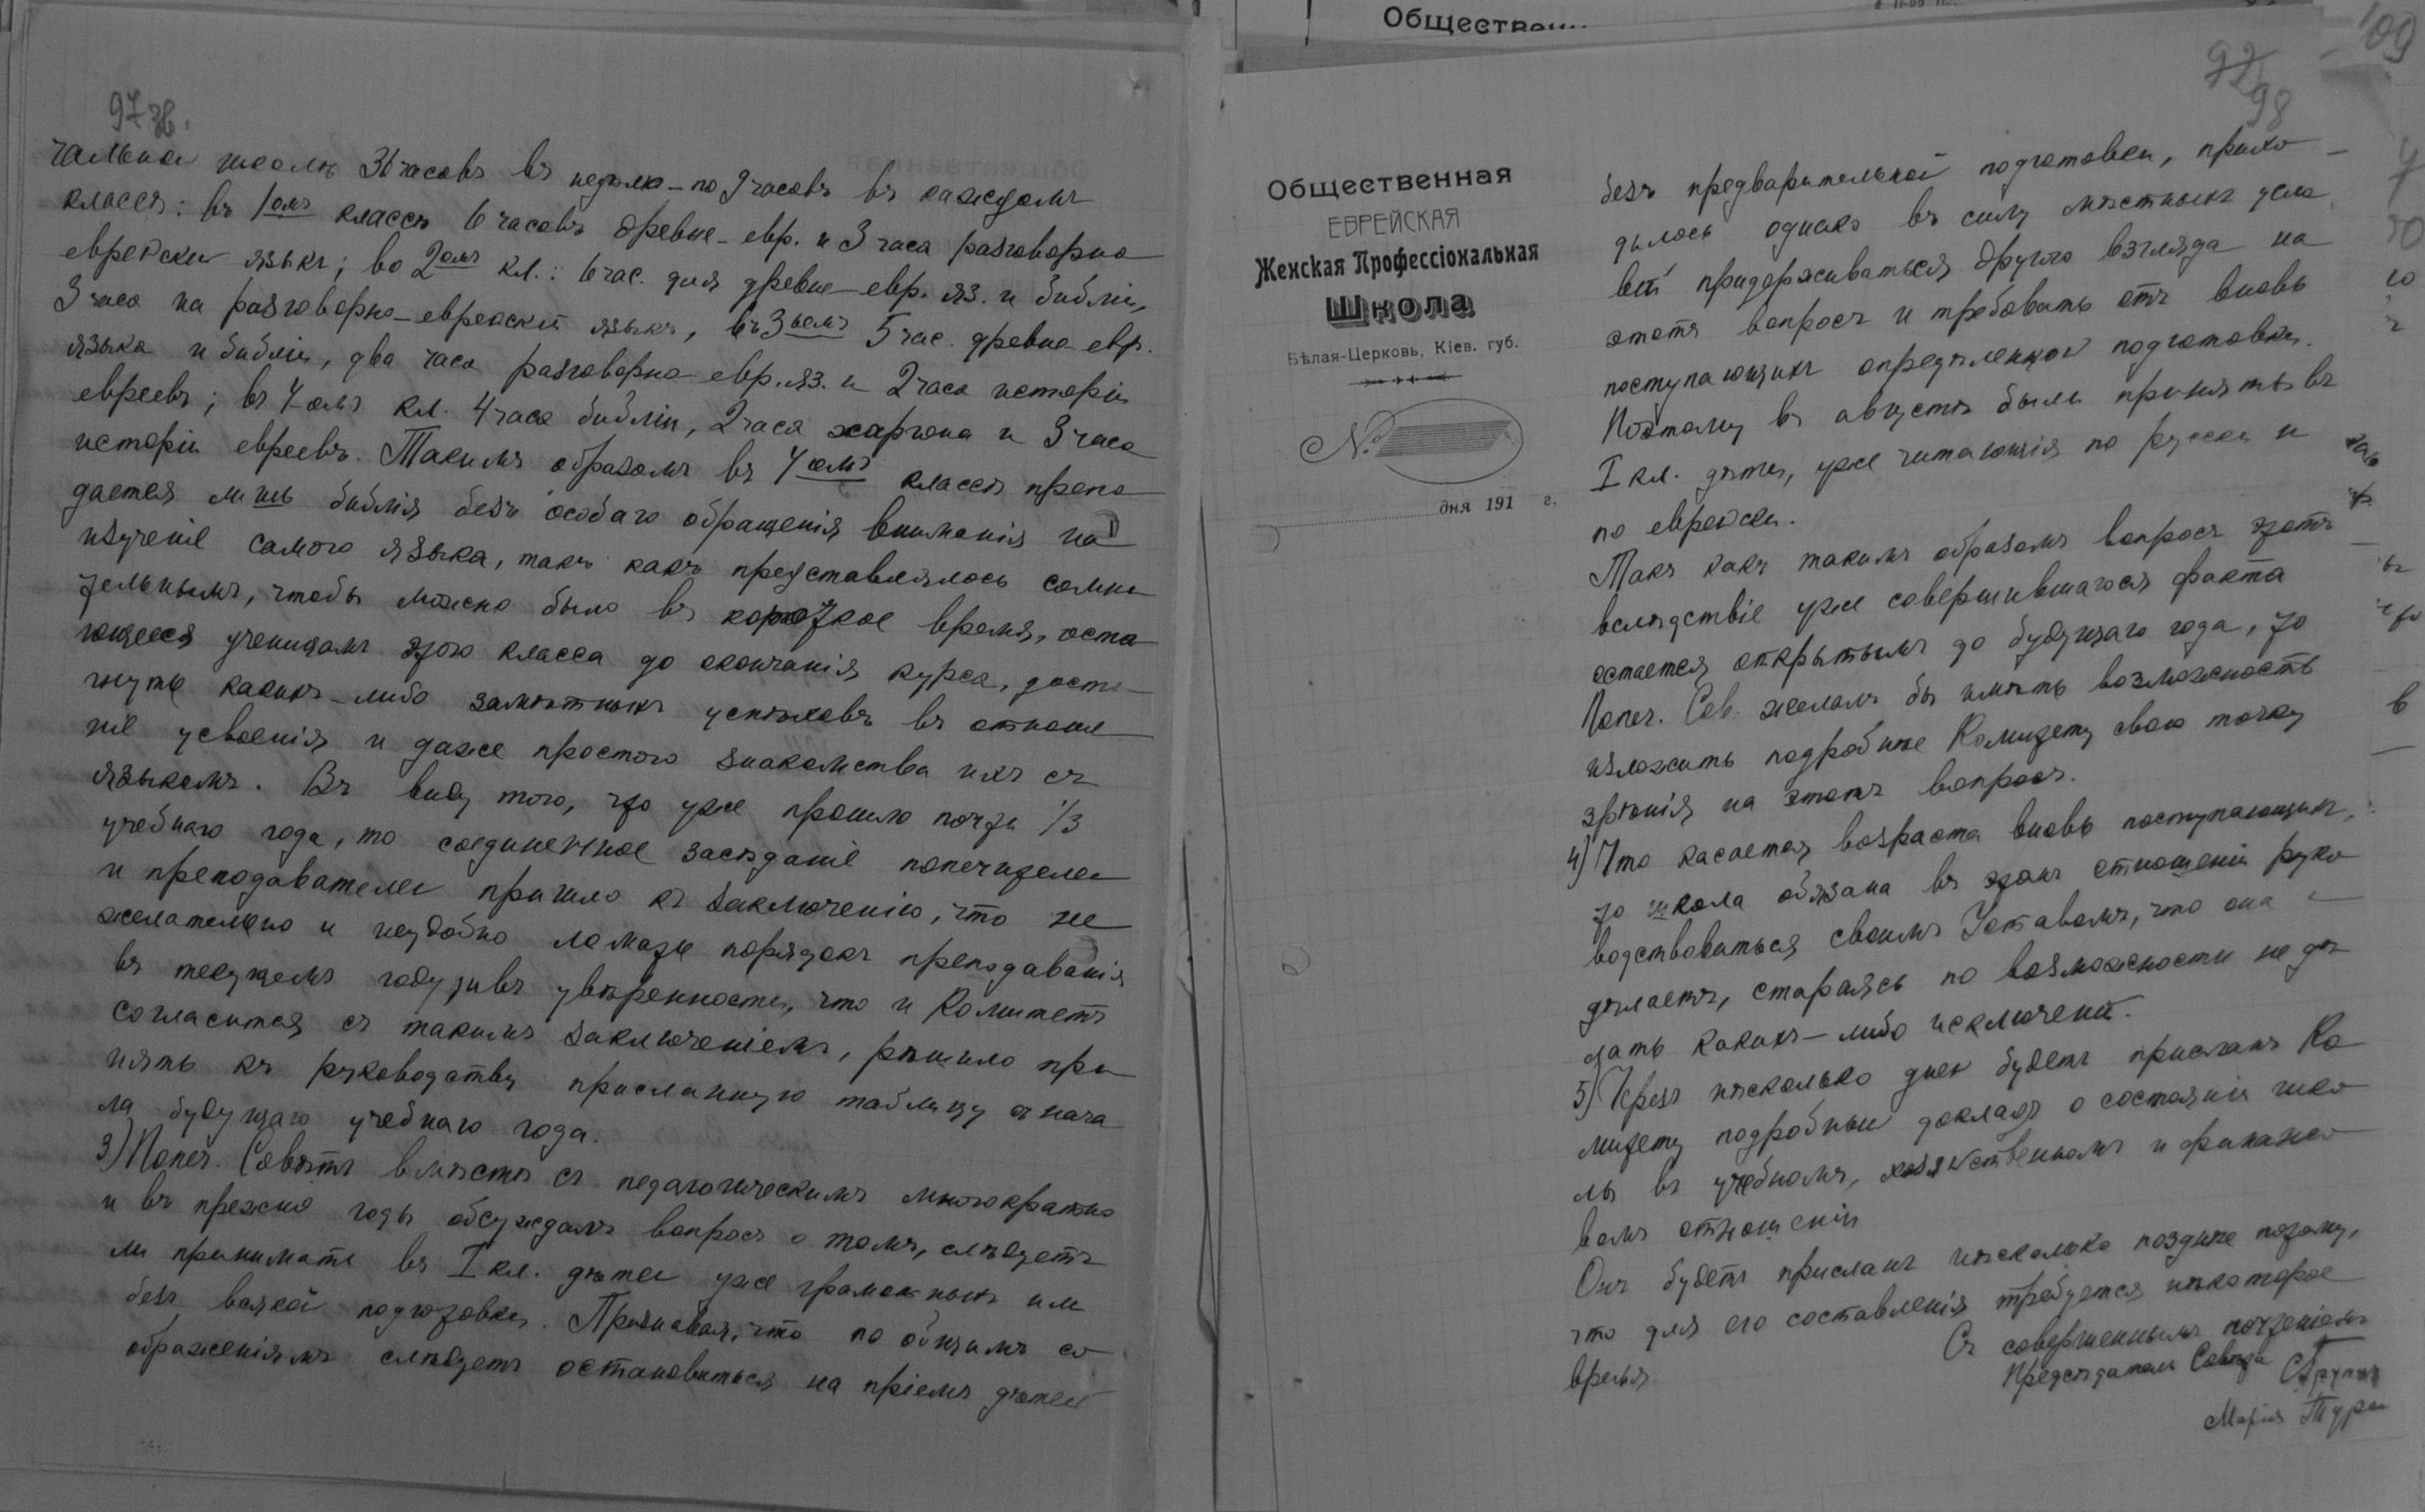 97 зв.
чальной школѣ 36 часовъ въ недѣлю – по 9 часовъ въ каждомъ
классѣ: въ 1омъ классѣ 6 часовъ древне-евр. и 3 часа разговорно
еврейскій языкъ; во 2омъ кл.: 6 час. для древне-евр. яз. и библіи,
3 часа на разговорно-еврейскій языкъ, въ 3ьемъ 5 час. древне-евр.
языка и библіи, два часа разговорно-евр. яз. и 2 часа исторіи
евреевъ; въ 4омъ кл. 4 часа библіи, 2 часа жаргона и 3 часа
исторіи евреевъ. Такимъ образомъ въ 4омъ классѣ препо
дается лишь библія безъ особаго обращенія вниманія на
изученіе самого языка, такъ какъ представлялось сомни
тельнымъ, чтобы можно было въ короткое время, оста
ющееся ученицамъ этого класса до окончанія курса, дости-
гнуть какихъ-либо замѣтныхъ успѣховъ въ отноше
ніе усвоенія и даже простого знакомства ихъ съ
языкомъ. Въ виду того, что уже прошло почти 1/3
учебнаго года, то соединенное засѣданіе попечителей
и преподавателей пришло къ заключенію, что не
желательно и неудобно ломать порядокъ преподаванія
въ текущемъ году, и въ увѣренности, что и Комитетъ
согласится съ такимъ заключеніемъ, рѣшило при
нять къ руководству присланную таблицу съ нача
ла будущаго учебнаго года.
3) Попеч. Совѣтъ вмѣстѣ съ педагогическимъ многократно
и въ прежніе годы обсуждалъ вопросъ о томъ, слѣдуетъ
ли принимать въ I кл. дѣтей уже грамотныхъ или
безъ всякой подготовки. Признавая, что по общимъ со
ображеніямъ слѣдуетъ остановиться на пріемѣ дѣтей
Обществен
109
92
98
Общественная
ЕВРЕЙСКАЯ
Женская Профессіональная
Школа
Бѣлая-Церковь, Кіев. губ.
№
дня 191 г.
безъ предварительной подготовки, прихо-
дилось однако въ силу мѣстныхъ усло
вій придерживаться другого взгляда на
этотъ вопросъ и требовать отъ вновь
поступающихъ опредѣленной подготовки.
Поэтому въ августѣ были приняты въ
I кл. дѣти, уже читающія по русски и
по еврейски.
Такъ какъ такимъ образомъ вопросъ этотъ
вслѣдствіе уже совершившагося факта
остается открытымъ до будущаго года, то
Попеч. Сов. желалъ бы имѣть возможность
изложить подробнѣе Комитету свою точку
зрѣнія на этотъ вопросъ.
4) Что касается возраста вновь поступающихъ,
то школа обязана въ этомъ отношеніи руко
водствоваться своимъ Уставомъ, что она и
дѣлаетъ, стараясь по возможности не дѣ
лать какихъ-либо исключеній.
5) Черезъ нѣсколько дней будетъ присланъ Ко
митету подробный докладъ о состояніи шко
лы въ учебномъ, хозяйственномъ и финансо
вомъ отношеніи
Онъ будетъ присланъ нѣсколько позднѣе потому,
что для его составленія требуется нѣкоторое
время.
Съ совершеннымъ почтеніемъ
Предсѣдатель Совѣта
Марія